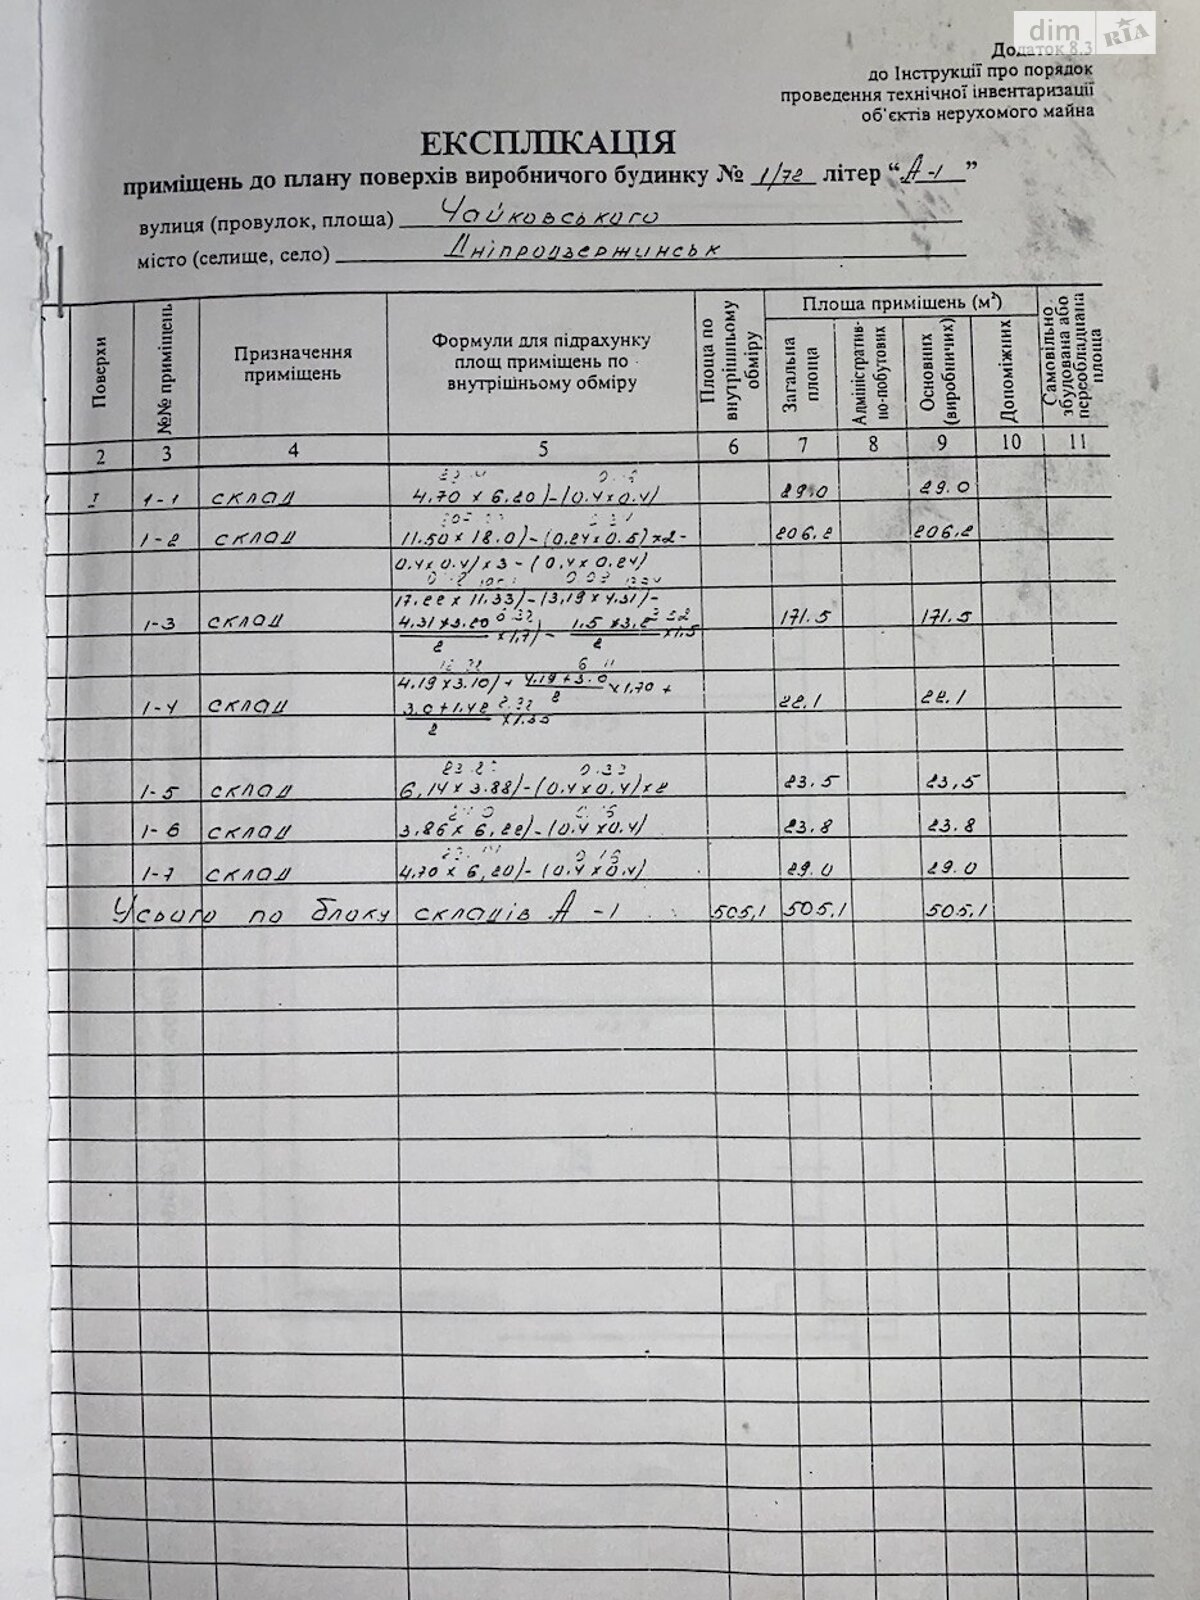 dim RIA
Додаток 8.3
до Інструкції про порядок
проведення технічної інвентаризації
об'єктів нерухомого майна
ЕКСПЛІКАЦІЯ
приміщень до плану поверхів виробничого будинку № 1/72 літер “А-1”
вулиця (провулок, площа) Чайковського
місто (селище, село) Дніпродзержинськ
Поверхи
№№ приміщень
Призначення приміщень
Формули для підрахунку площ приміщень по внутрішньому обміру
Площа по внутрішньому обміру
Площа приміщень (м²)
Загальна площа
Адміністратив-но-побутових
Основних (виробничих)
Допоміжних
Самовільно збудована або переобладнана площа
2 3 4 5 6 7 8 9 10 11
I 1-1 склад 4.70 x 6.20)-(0.4x0.4) 29.0 29.0
1-2 склад 11.50 x 18.0)-(0.24x0.5)x2- 206.2 206.2
0.4x0.4)x3-(0.4x0.24)
17.22 x 11.33)-(3,19 x 4.31)-
1-3 склад 4.31x3.20/2 x1,7)- 1.5x3.2/2 x1.5 171.5 171.5
4.19x3.10)+ 4.19+3.0/2 x1,70+
1-4 склад 3.0+1.42/2 22.1 22.1
1-5 склад 6,14x3.88)-(0.4x0.4)x2 23.5 23,5
1-6 склад 3.86x6,22)-(0.4x0.4) 23.8 23.8
1-7 склад 4.70x6,20)-(0.4x0.4) 29.0 29.0
Усього по блоку складів А-1 505,1 505,1 505,1